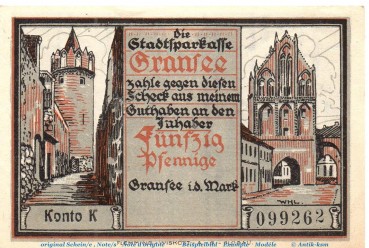 Die
Stadtsparkasse
Gransee
zahle gegen diesen
Scheck aus meinem
Guthaben an den
Inhaber
Fünfzig
Pfennige
Gransee i. Mark
Konto K
WHL.
099262
original Schein/e , Note/s
Beispielbild Modèle © Antik-kam